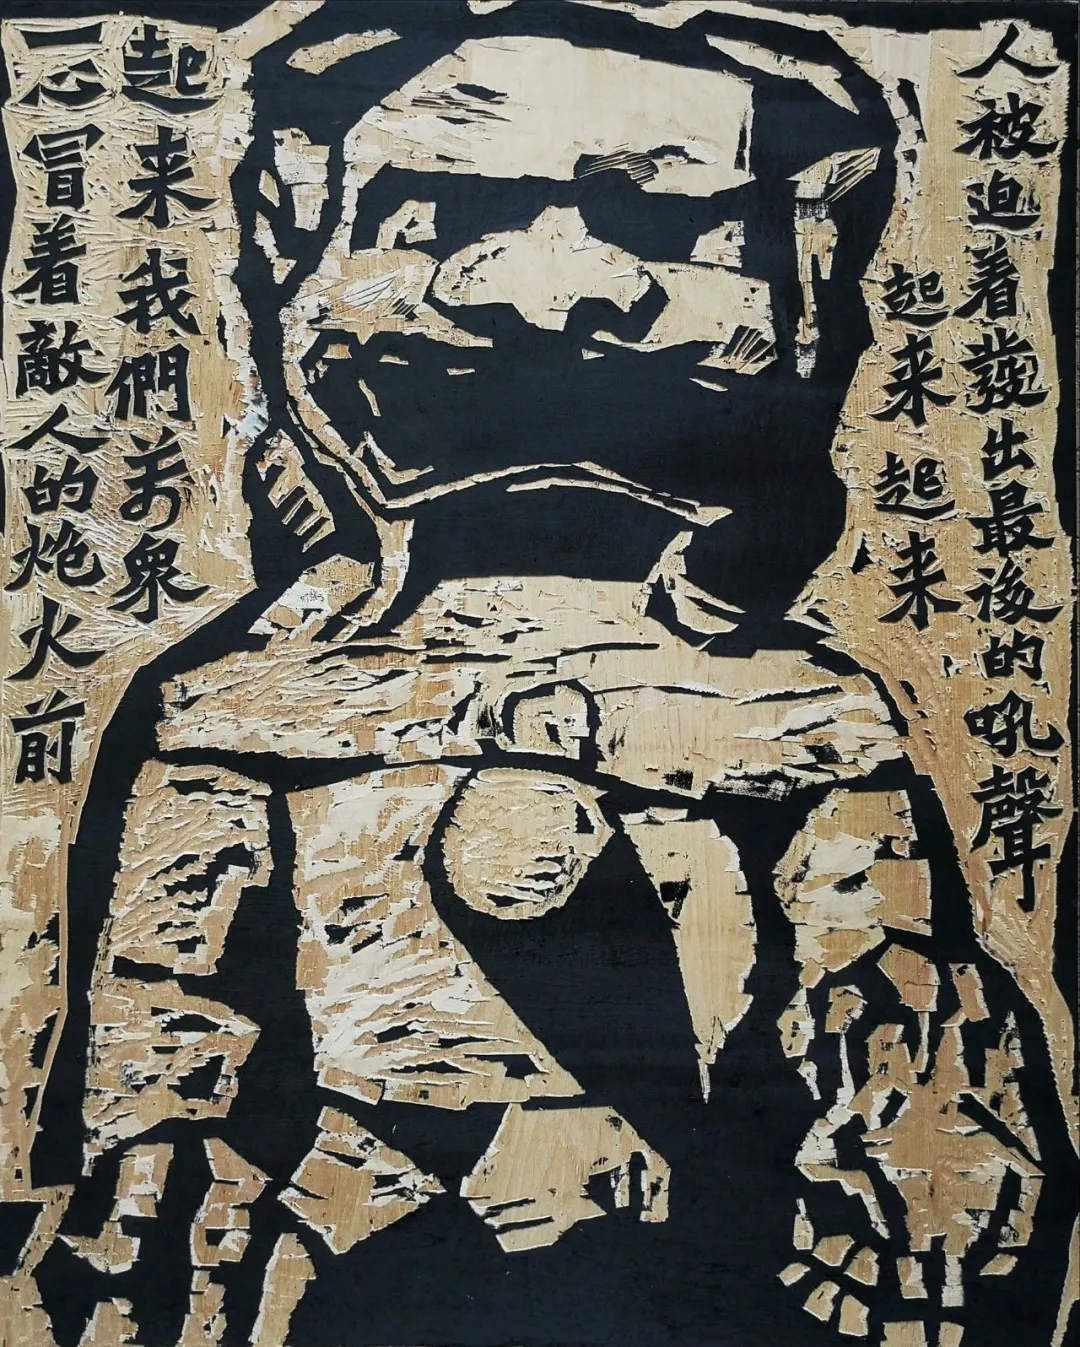 人被迫着發出最後的吼聲
起来起来
起来我們萬衆
一心冒着敵人的炮火前